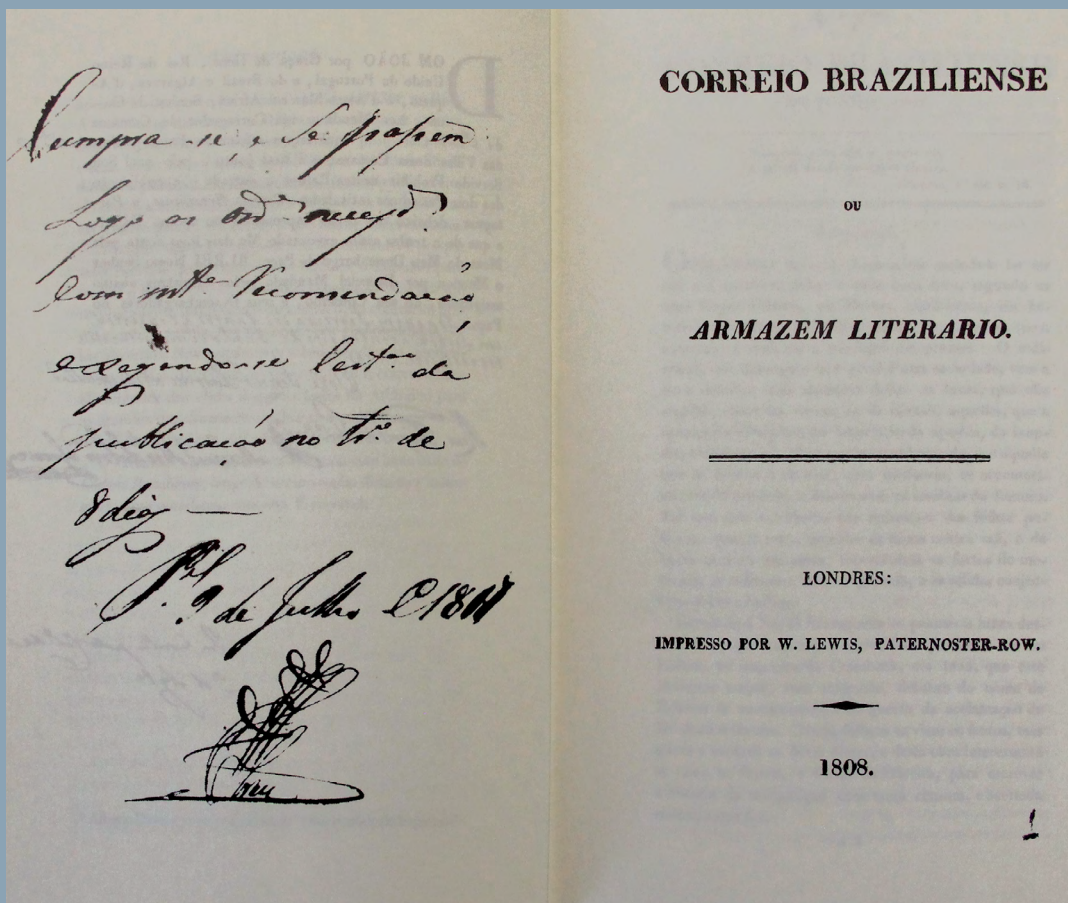 Cumpra-se, e se passem
Logo as ord.s necess.
Com mt.a Recomendação
e xegandose Cert.am da
publicação no tr.o de
8 dias —
P.el 9 de Julho
CORREIO BRAZILIENSE
OU
ARMAZEM LITERARIO.
LONDRES:
IMPRESSO POR W. LEWIS, PATERNOSTER-ROW.
1808.
1